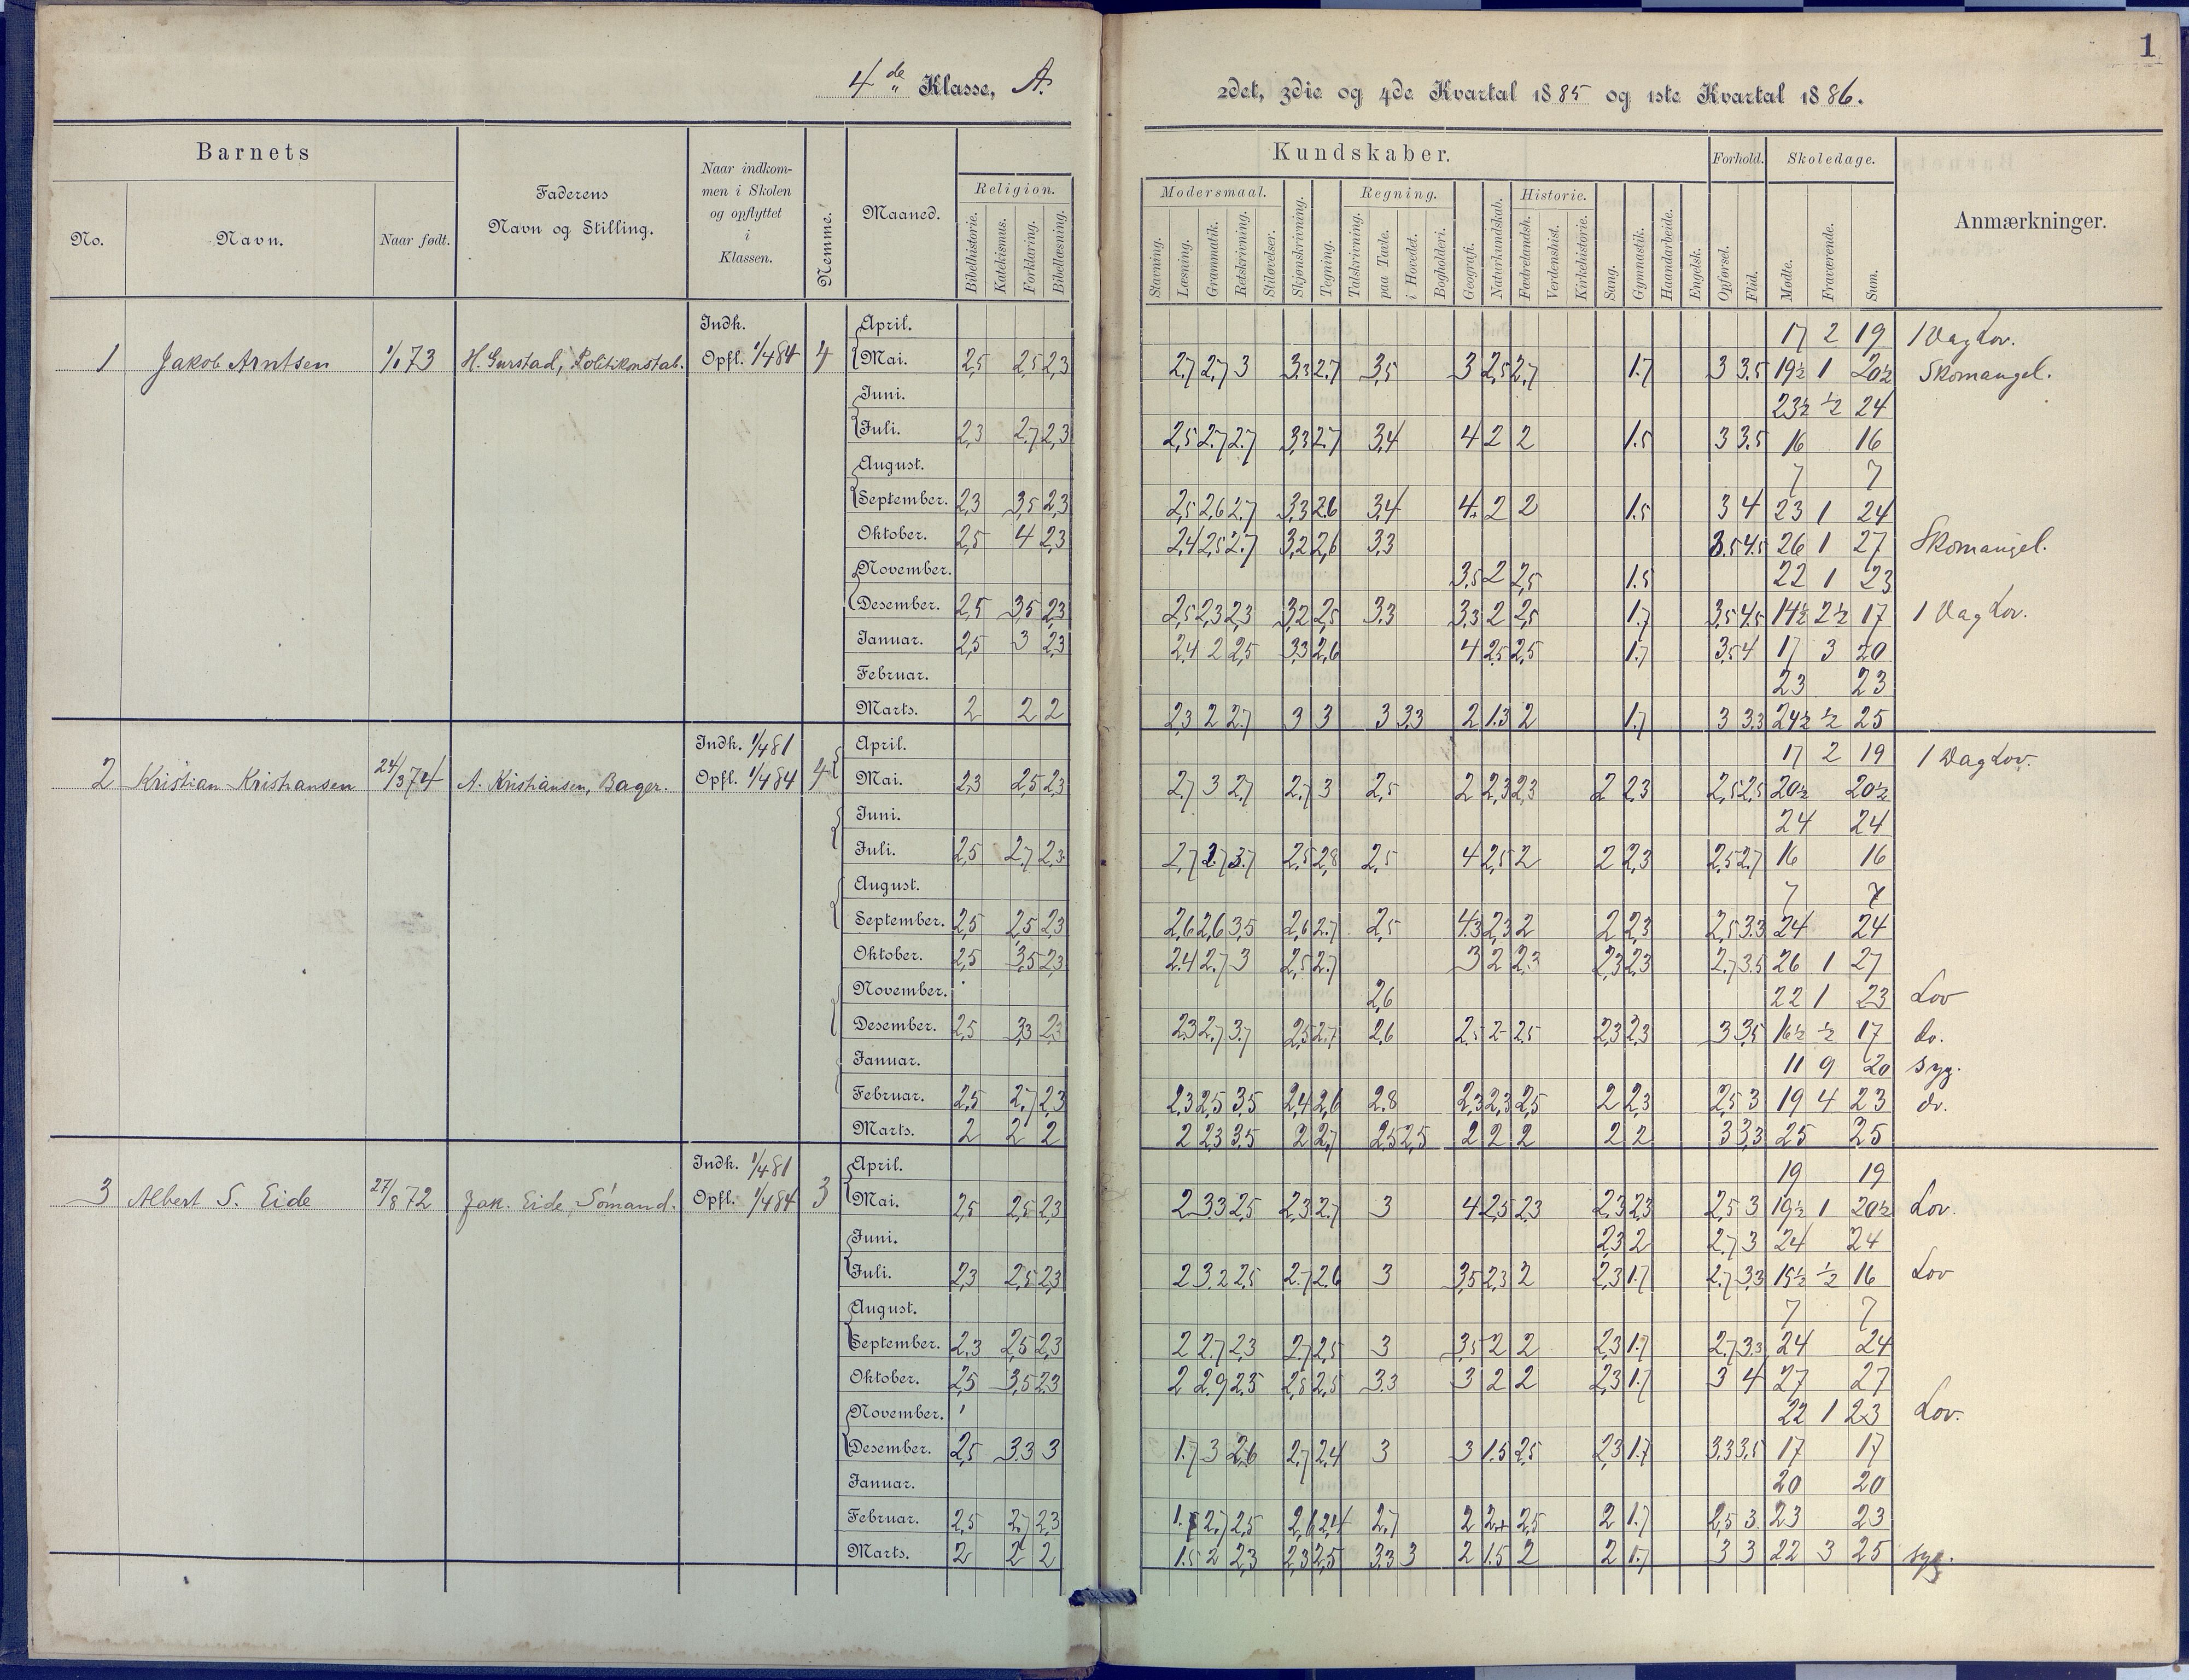 1
4de Klasse, A.
2det, 3die og 4de Kvartal 1885 og 1ste Kvartal 1886.
Barnets
Faderens
Navn og Stilling.
Naar indkom-
men i Skolen
og opflyttet
i
Klassen.
Nemme.
Maaned.
Religion.
Kundskaber.
Forhold.
Skoledage.
Anmærkninger.
Modersmaal.
Regning.
Historie.
No.
Navn.
Naar født.
Bibelhistorie.
Katekismus.
Forklaring.
Bibellæsning.
Stavning.
Læsning.
Grammatik.
Retskrivning.
Stiløvelser.
Skjønskrivning.
Tegning.
Talskrivning.
paa Tavle.
i Hovedet.
Bogholderi.
Geografi.
Naturkundskab.
Fædrelandsh.
Verdenshist.
Kirkehistorie.
Sang.
Gymnastik.
Haandarbeide.
Engelsk.
Opførsel.
Flid.
Mødte.
Fraværende.
Sum.
Indk. April. 17 2 19 1 Dag Lov.
1 Jakob Arntsen 1/1 73 H. Gurstad, Politikonstab. Opfl. 1/4 84 4 Mai. 2,5 2,5 2,3 2,7 2,7 3 3,3 2,7 3,5 3 2,5 2,7 1.7 3 3.5 19½ 1 20½ Skomangel.
Juni. 23½ ½ 24
Juli. 2,3 2,7 2,3 2,5 2.7 2.7 3,3 2.7 3,4 4 2 2 1.5 3 3.5 16 16
August. 7 7
September. 2,3 3,5 2,3 2,5 2,6 2.7 3,3 2.6 3,4 4. 2 2 1.5 3 4 23 1 24
Oktober. 2,5 4 2,3 2,4 2,5 2.7 3,2 2,6 3,3 3.5 4.5 26 1 27 Skomangel.
November. 3,5 2 2,5 1.5 22 1 23
Desember. 2,5 3,5 2,3 2,5 2,3 2,3 3,2 2,5 3,3 3,3 2 2,5 1.7 3,5 4.5 14½ 2½ 17 1 Dag Lov.
Januar. 2,5 3 2,3 2,4 2 2,5 3,3 2,6 4 2,5 2,5 1.7 3,5 4 17 3 20
Februar. 23 23
Marts. 2 2 2 2,3 2 2.7 3 3 3 3,3 2 1.3 2 1.7 3 3.3 24½ ½ 25
Indk. 1/4 81 April. 17 2 19 1 Dag Lov.
2 Kristian Kristiansen 24/3 74 A. Kristiansen, Bager. Opfl. 1/4 84 4 Mai. 2,3 2,5 2,3 2,7 3 2,7 2.7 3 2,5 2 2,3 2,3 2 2,3 2,5 2,5 20½ 20½
Juni. 24 24
Juli. 2,5 2,7 2,3 2,7 2.7 3.7 2,5 2,8 2,5 4 2,5 2 2 2,3 2,5 2,7 16 16
August. 7 7
September. 2,5 2,5 2,3 2,6 2,6 3,5 2,6 2.7 2,5 4.3 2,3 2 2 2,3 2,5 3.3 24 24
Oktober. 2,5 3,5 2,3 2.4 2.7 3 2,5 2.7 3 2 2,3 2,3 2,3 2,7 3.5 26 1 27
November. 2,6 22 1 23 Lov
Desember. 2,5 3,3 2,3 2,3 2,7 3,7 2,5 2,7 2,6 2,5 2 2,5 2,3 2,3 3 3,5 16½ ½ 17 do.
Januar. 11 9 20 syg.
Februar. 2,5 2,7 2,3 2,3 2,5 3,5 2,4 2,6 2.8 2,3 2,3 2,5 2 2,3 2,5 3 19 4 23 do.
Marts. 2 2 2 2 2,3 3.5 2 2,7 2,5 2,5 2 2 2 2 2 3 3,3 25 25
Indk. 1/4 81 April. 19 19
3 Albert S. Eide 27/8 72 Jak. Eide, Sømand. Opfl. 1/4 84 3 Mai. 2,5 2,5 2,3 2 3.3 2.5 2,3 2.7 3 4 2,5 2,3 2,3 2,3 2,5 3 19½ 1 20½ Lov.
Juni. 2,3 2 2.7 3 24 24
Juli. 2,3 2,5 2,3 2 3.2 2.5 2.7 2.6 3 3,5 2,3 2 2,3 1.7 2.7 3,3 15½ ½ 16 Lov
August. 7 7
September. 2,3 2,5 2,3 2 2.7 2,3 2,7 2,5 3 3,5 2 2 2,3 1.7 2.7 3.3 24 24
Oktober. 2,5 3,5 2,3 2 2.9 2.5 2,8 2,5 3.3 3 2 2 2,3 1.7 3 4 27 27
November. 22 1 23 Lov.
Desember. 2,5 3.3 3 1.7 3 2,6 2,7 2,4 3 3 1.5 2,5 2,3 1.7 3,3 3,5 17 17
Januar. 20 20
Februar. 2,5 2,7 2,3 2.7 2,5 2,6 2,4 2.7 2 2,5 2 1.7 2,5 3 23 23
Marts. 2 2 2 1.5 2 2,3 2,3 2,5 3.3 3 2 1.5 2 2 1.7 3 3 22 3 25 syg.